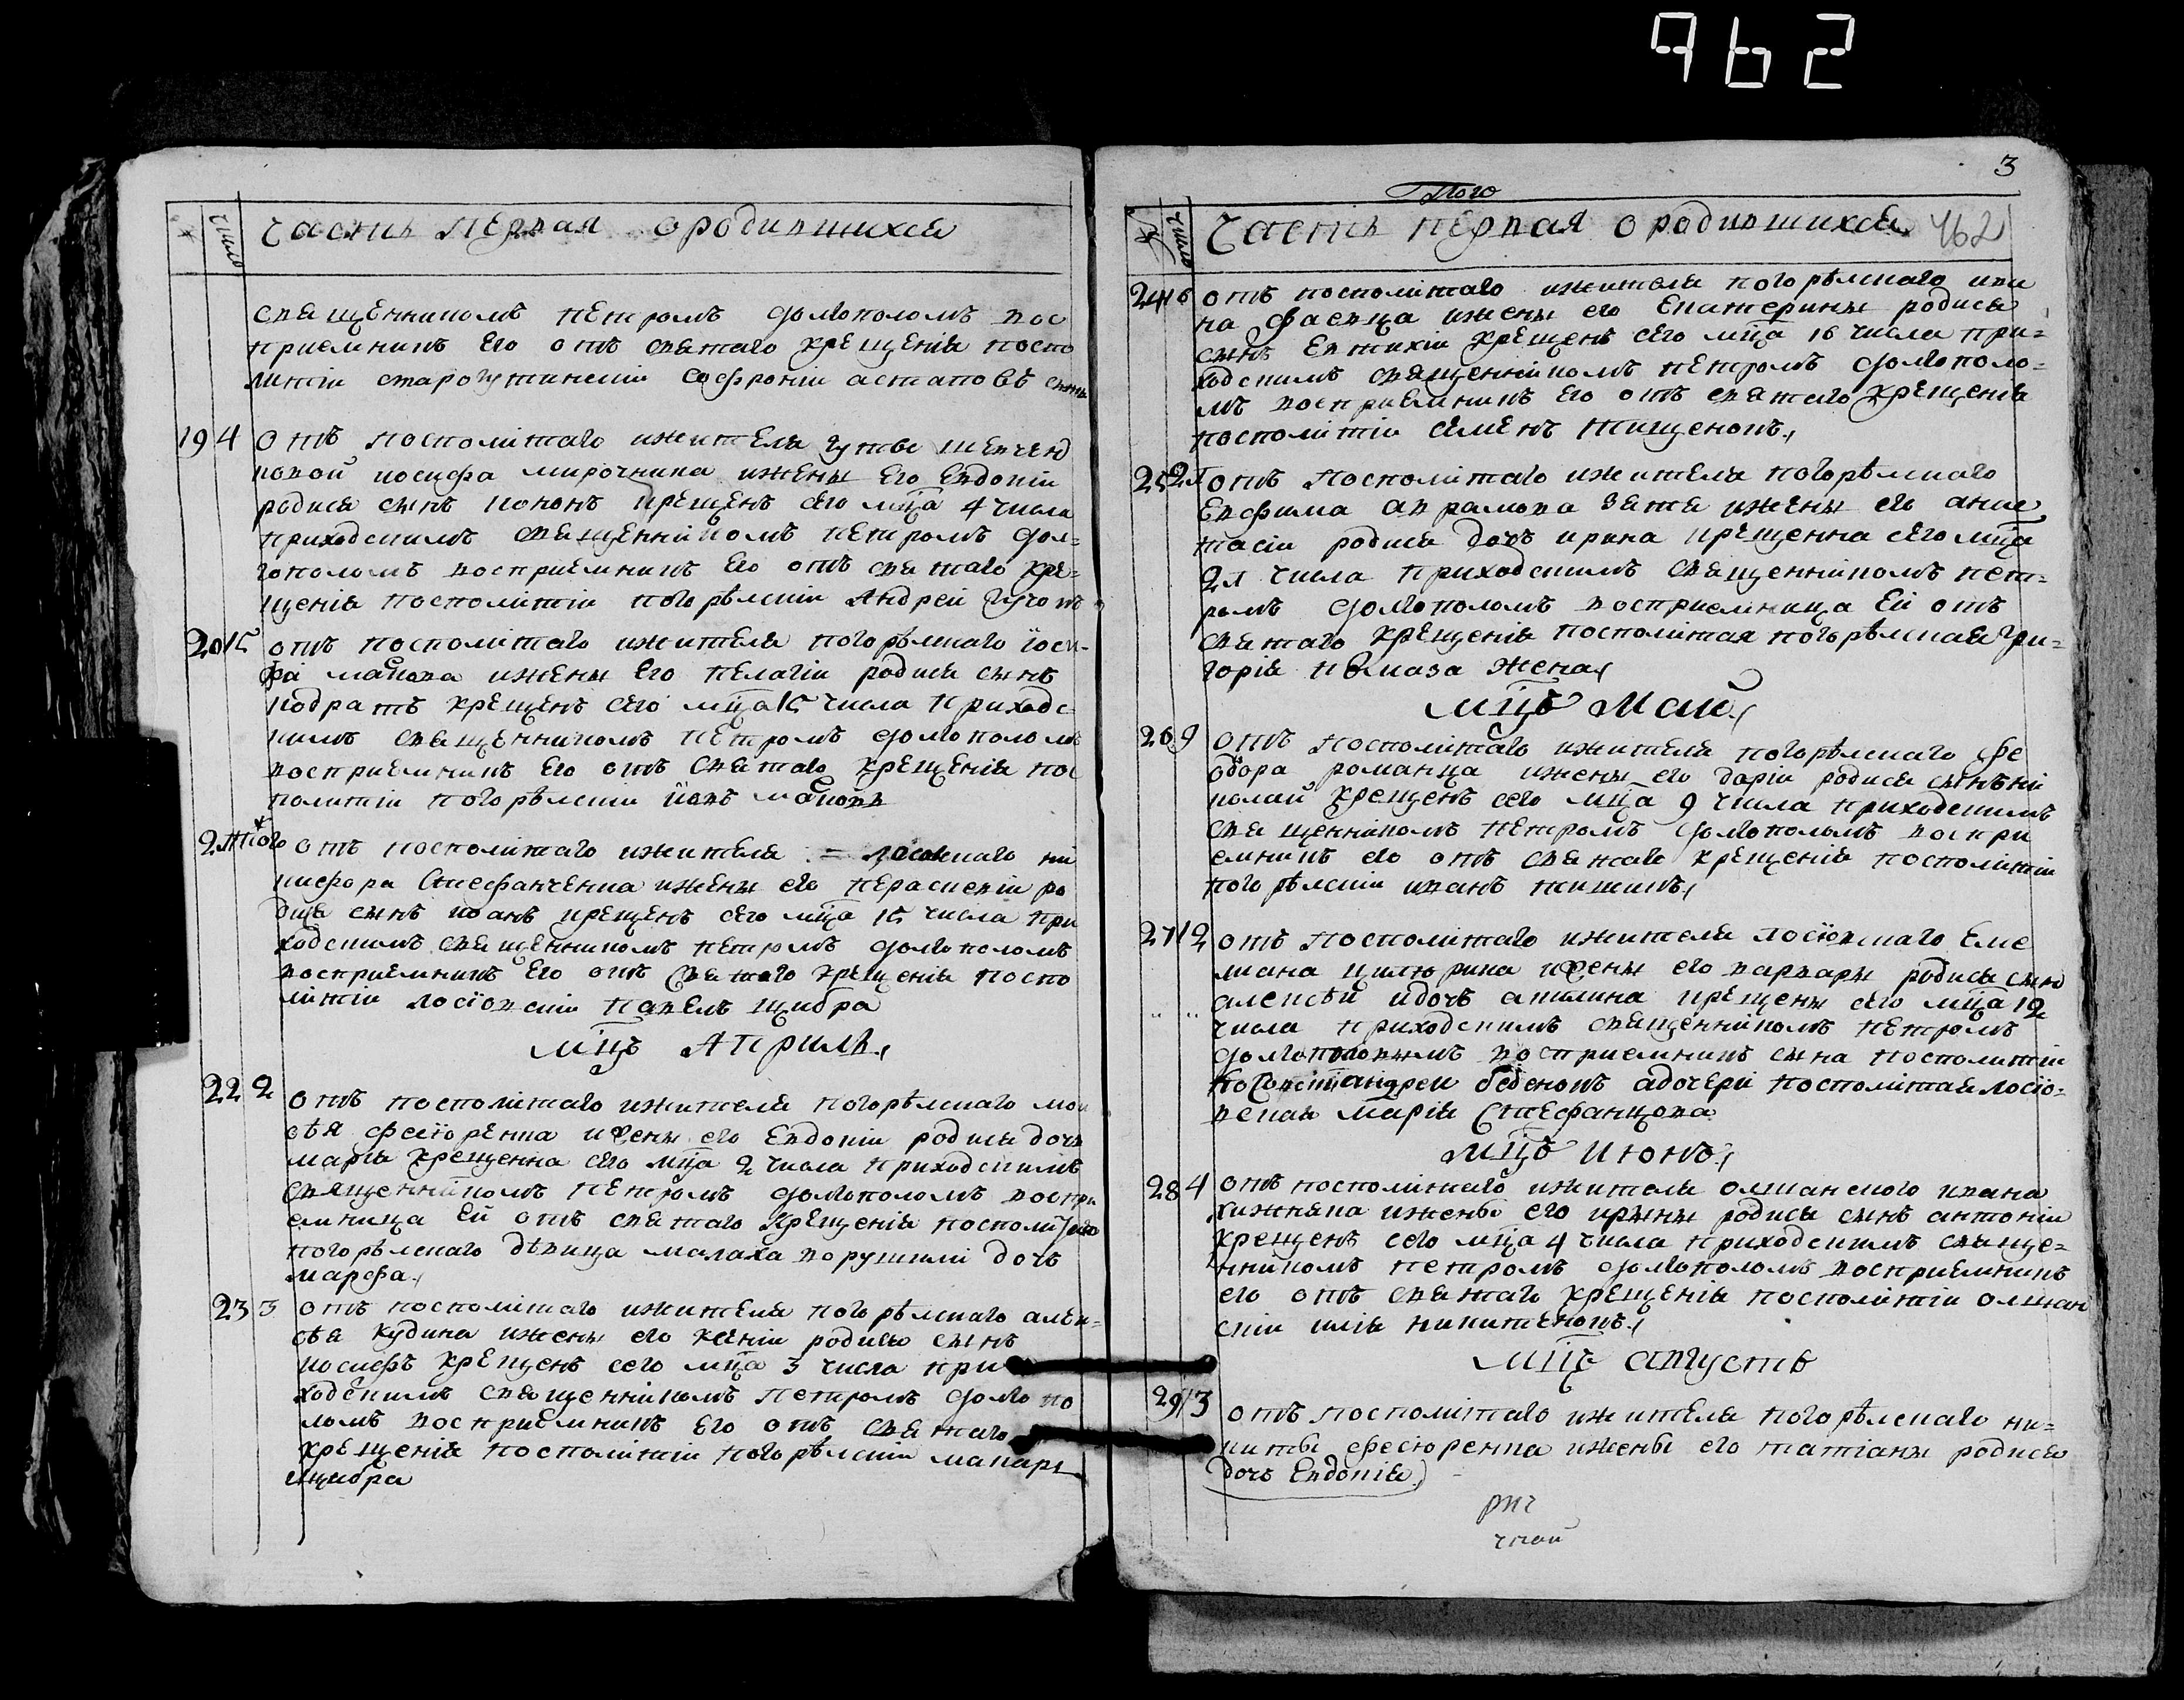 962
число
часть первая о родившихся
священникомъ петромъ долгополомъ вос
приемникъ его отъ святаго крещенія поспо
литіи старогутинскіи софроніи астаповъ сынъ
19 4 отъ посполитаго жителя гутве шевченд
ковой иосифа мирочника ижены его евдокіи
родися сынъ кононъ крещенъ сего мца 4 числа
приходскимъ священникомъ петромъ дол=
гополомъ восприемникъ его отъ святаго кре=
щенія посполитіи погорѣлскіи Андреи
20 15 отъ посполитаго ижителя погорѣлскаго іоси-
фа макова ижены его пелагіи родися сынъ
кодратъ крещенъ сего мца 15 числа приходс
кимъ священникомъ петромъ долгополомъ
восприемникъ его отъ святаго крещенія пос
политіи погорѣлскіи іовъ
21 того отъ посполитаго ижителя = ни
кифора Стефанченка ижены его пераскевіи ро
дися сынъ иоанъ крещенъ сего мца 15 числа при
ходскимъ священникомъ петромъ долгополомъ
восприемникъ его отъ святаго крещенія поспо
литіи лосіовскіи павелъ щибра
мцъ Априль
22 2 отъ посполитаго ижителя погорѣлскаго мои
сѣя фесіоренка ижены его евдокіи родися дочь
марія крещенна сего мца 2 числа приходскимъ
священникомъ петромъ долгополомъ воспри
емница ей отъ святаго крещенія посполитаго
погорѣлскаго дѣвица малаха ворушкли дочь
марфа
23 3 отъ посполитаго ижителя погорѣлскаго алек=
сѣя кудина ижены его ксеніи родися сынъ
иосифъ крещенъ сего мца 3 числа при
ходскимъ священникомъ петромъ долгопо
ломъ восприемникъ его отъ святаго
крещенія посполитіи погорѣлскіи макаръ
щибра
3
Того
число
часть первая о родившихся 462
24 16 отъ посполитаго ижителя погорѣлскаго ива
на фаевца ижены его екатерины родися
сынъ евтихіи крещенъ сего мца 16 числа при=
ходскимъ священникомъ петромъ долгополо=
мъ восприемникъ его отъ святаго крещенія
посполитіи семенъ тищенокъ
25 21 отъ посполитаго ижителя погорѣлскаго
Евфима аврамова зятя ижены его анис
тасіи родися дочъ ирина крещенна сего мца
21 числа приходскимъ священникомъ пет=
ромъ долгополомъ восприемница ей отъ
святаго крещенія посполитая погорѣлская гри=
горія жена
мцъ Маи
26 9 отъ посполитаго ижителя погорѣлскаго фе
одора романца ижены его даріи родися сынъ ни
колаи крещенъ сего мца 9 числа приходскимъ
священникомъ петромъ долгополомъ воспри
емникъ его отъ святаго крещенія посполитіи
погорѣлскіи иванъ
27 12 отъ посполитаго ижителя лосіовскаго еме
лиана цилюрика ижены его варвары родися сынъ
алексѣи идочъ акилина крещены сего мца 12
числа приходскимъ священникомъ петромъ
долгополымъ восприемникъ сына посполитіи
андреи беденокъ адочери посполитая лосіо=
вская марія Стефанцова
мцъ июнь
28 4 отъ посполитаго ижителя олшанского ивана
хижняка ижены его ирыны родися сынъ антоніи
крещенъ сего мца 4 числа приходскимъ священ=
никомъ петромъ долгополомъ восприемникъ
его отъ святаго крещенія посполитіи олшан
скіи илія никитенокъ
мцъ августъ
29 13 отъ посполитаго ижителя погорѣлскаго ни=
киты фесюренка ижены его татіаны родися
дочь Евдокія